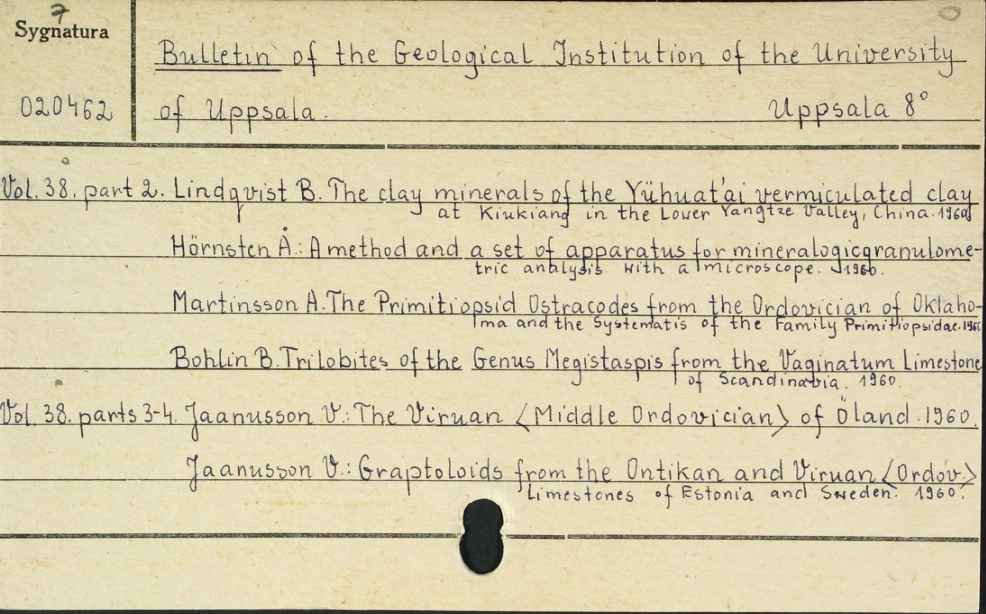 7
Sygnatura
Bulletin of the Geological Institution of the University
020462
of Uppsala. Uppsala 8°
Vol. 38. part 2. Lindqvist B. The clay minerals of the Yühuat'ai vermiculated clay
at Kiukiang in the Lower Yangtze Valley, China. 1960
Hörnsten Å.: A method and a set of apparatus for mineralogicgranulome-
tric analysis with a microscope. 1960.
Martinsson A. The Primitiopsid Ostracodes from the Ordovician of Oklaho-
ma and the Systematis of the Family Primitiopsidae. 1960
Bohlin B. Trilobites of the Genus Megistaspis from the Vaginatum Limestone
of Scandinavia. 1960.
Vol. 38. parts 3-4. Jaanusson V.: The Viruan <Middle Ordovician> of Öland. 1960.
Jaanusson V.: Graptoloids from the Ontikan and Viruan <Ordov.>
Limestones of Estonia and Sweden. 1960.